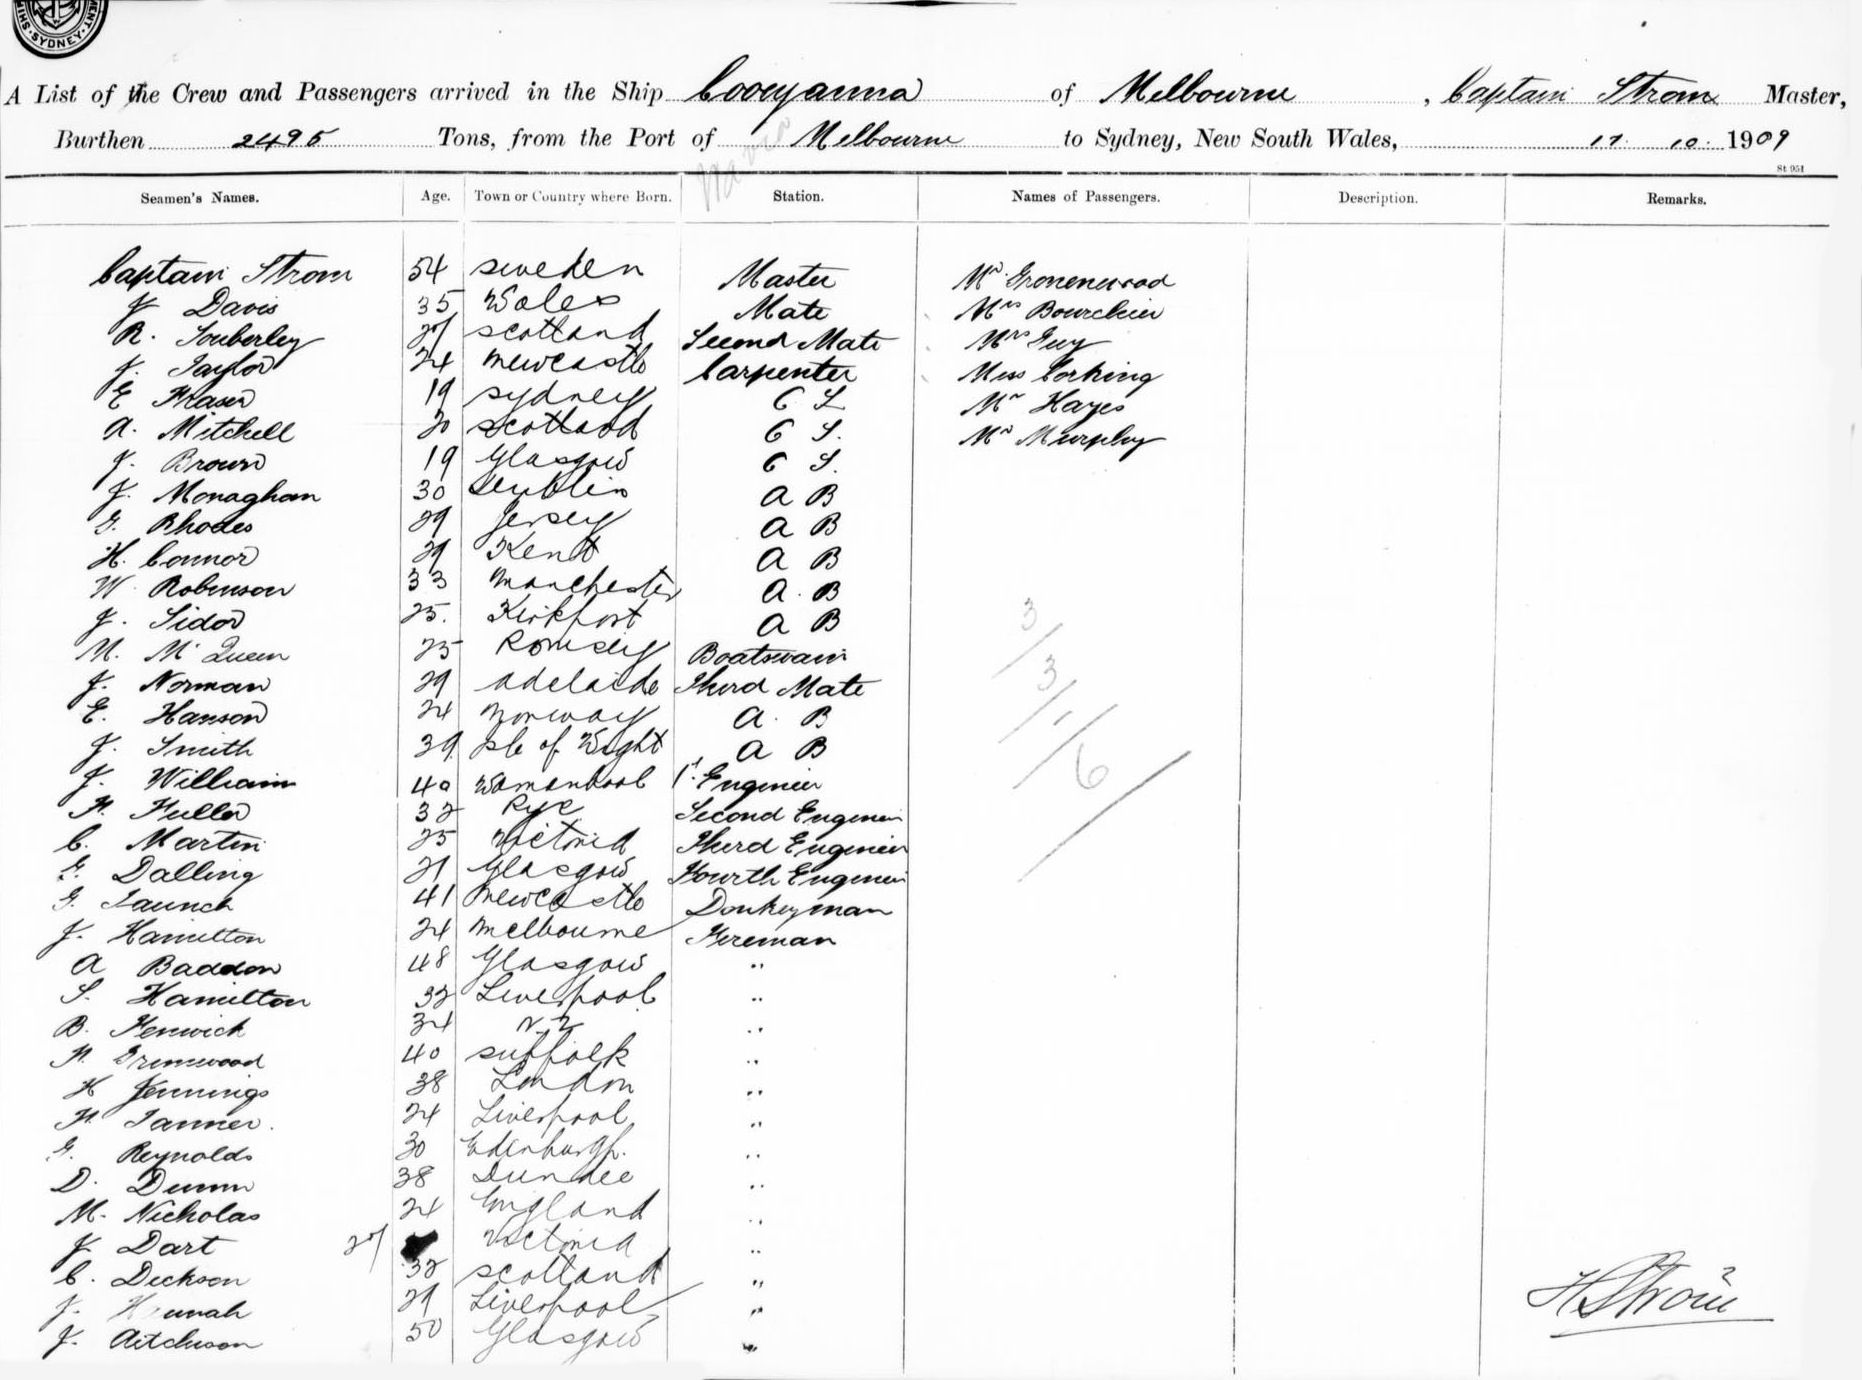 SYDNEY
A List of the Crew and Passengers arrived in the Ship Cooeyanna of Melbourne, Captain Strom Master,
Burthen 2495 Tons, from the Port of Melbourne to Sydney, New South Wales, 17. 10. 1909
St 951
Seamen's Names. Age. Town or Country where Born. Station. Names of Passengers. Description. Remarks.
Captain Strom 54 Sweden Master Mr. Gronenwood
J Davis 35 Wales Mate Mrs Bourchier
R. Souberley 27 Scotland Second Mate Mrs Guy
J. Taylor 24 Newcastle Carpenter Miss Corking
E Fraser 19 Sydney Mr Hayes
A. Mitchell 20 Scotland O S. Mr Murphy
J. Brown 19 Glasgow O S.
J. Monaghan 30 Dublin A B
G. Rhodes 29 Jersey A B
H. Connor 29 Kent A B
W. Robinson 33 Manchester A. B
J. Sidor 25. Kirkport A B
M. McQueen 25 Romsey Boatswain
J. Norman 29 Adelaide Third Mate
E. Hanson 24 Norway A. B
J. Smith 39 Isle of Wight A B
J. William 40 Warnambool 1st Engineer
F. Fuller 32 Rye Second Engineer
C. Martin 25 Victoria Third Engineer
G. Dalling 21 Glasgow Fourth Engineer
G. Launch 41 Newcastle Donkeyman
J. Hamilton 24 Melbourne Fireman
A Baddon 48 Glasgow "
S. Hamilton 32 Liverpool "
B. Fenwick 34 N. Z "
F. Grimwood 40 Suffolk "
H Jennings 38 London "
F. Tanner. 24 Liverpool "
G. Reynolds 30 Edenburgh. "
D. Dunn 38 Dundee "
M. Nicholas 24 England "
J Dart 27 Victoria "
C. Dickson 32 Scotland "
J. Hannah 29 Liverpool "
J. Aitchison 50 Glasgow "
3/3/1/6/
H Ström